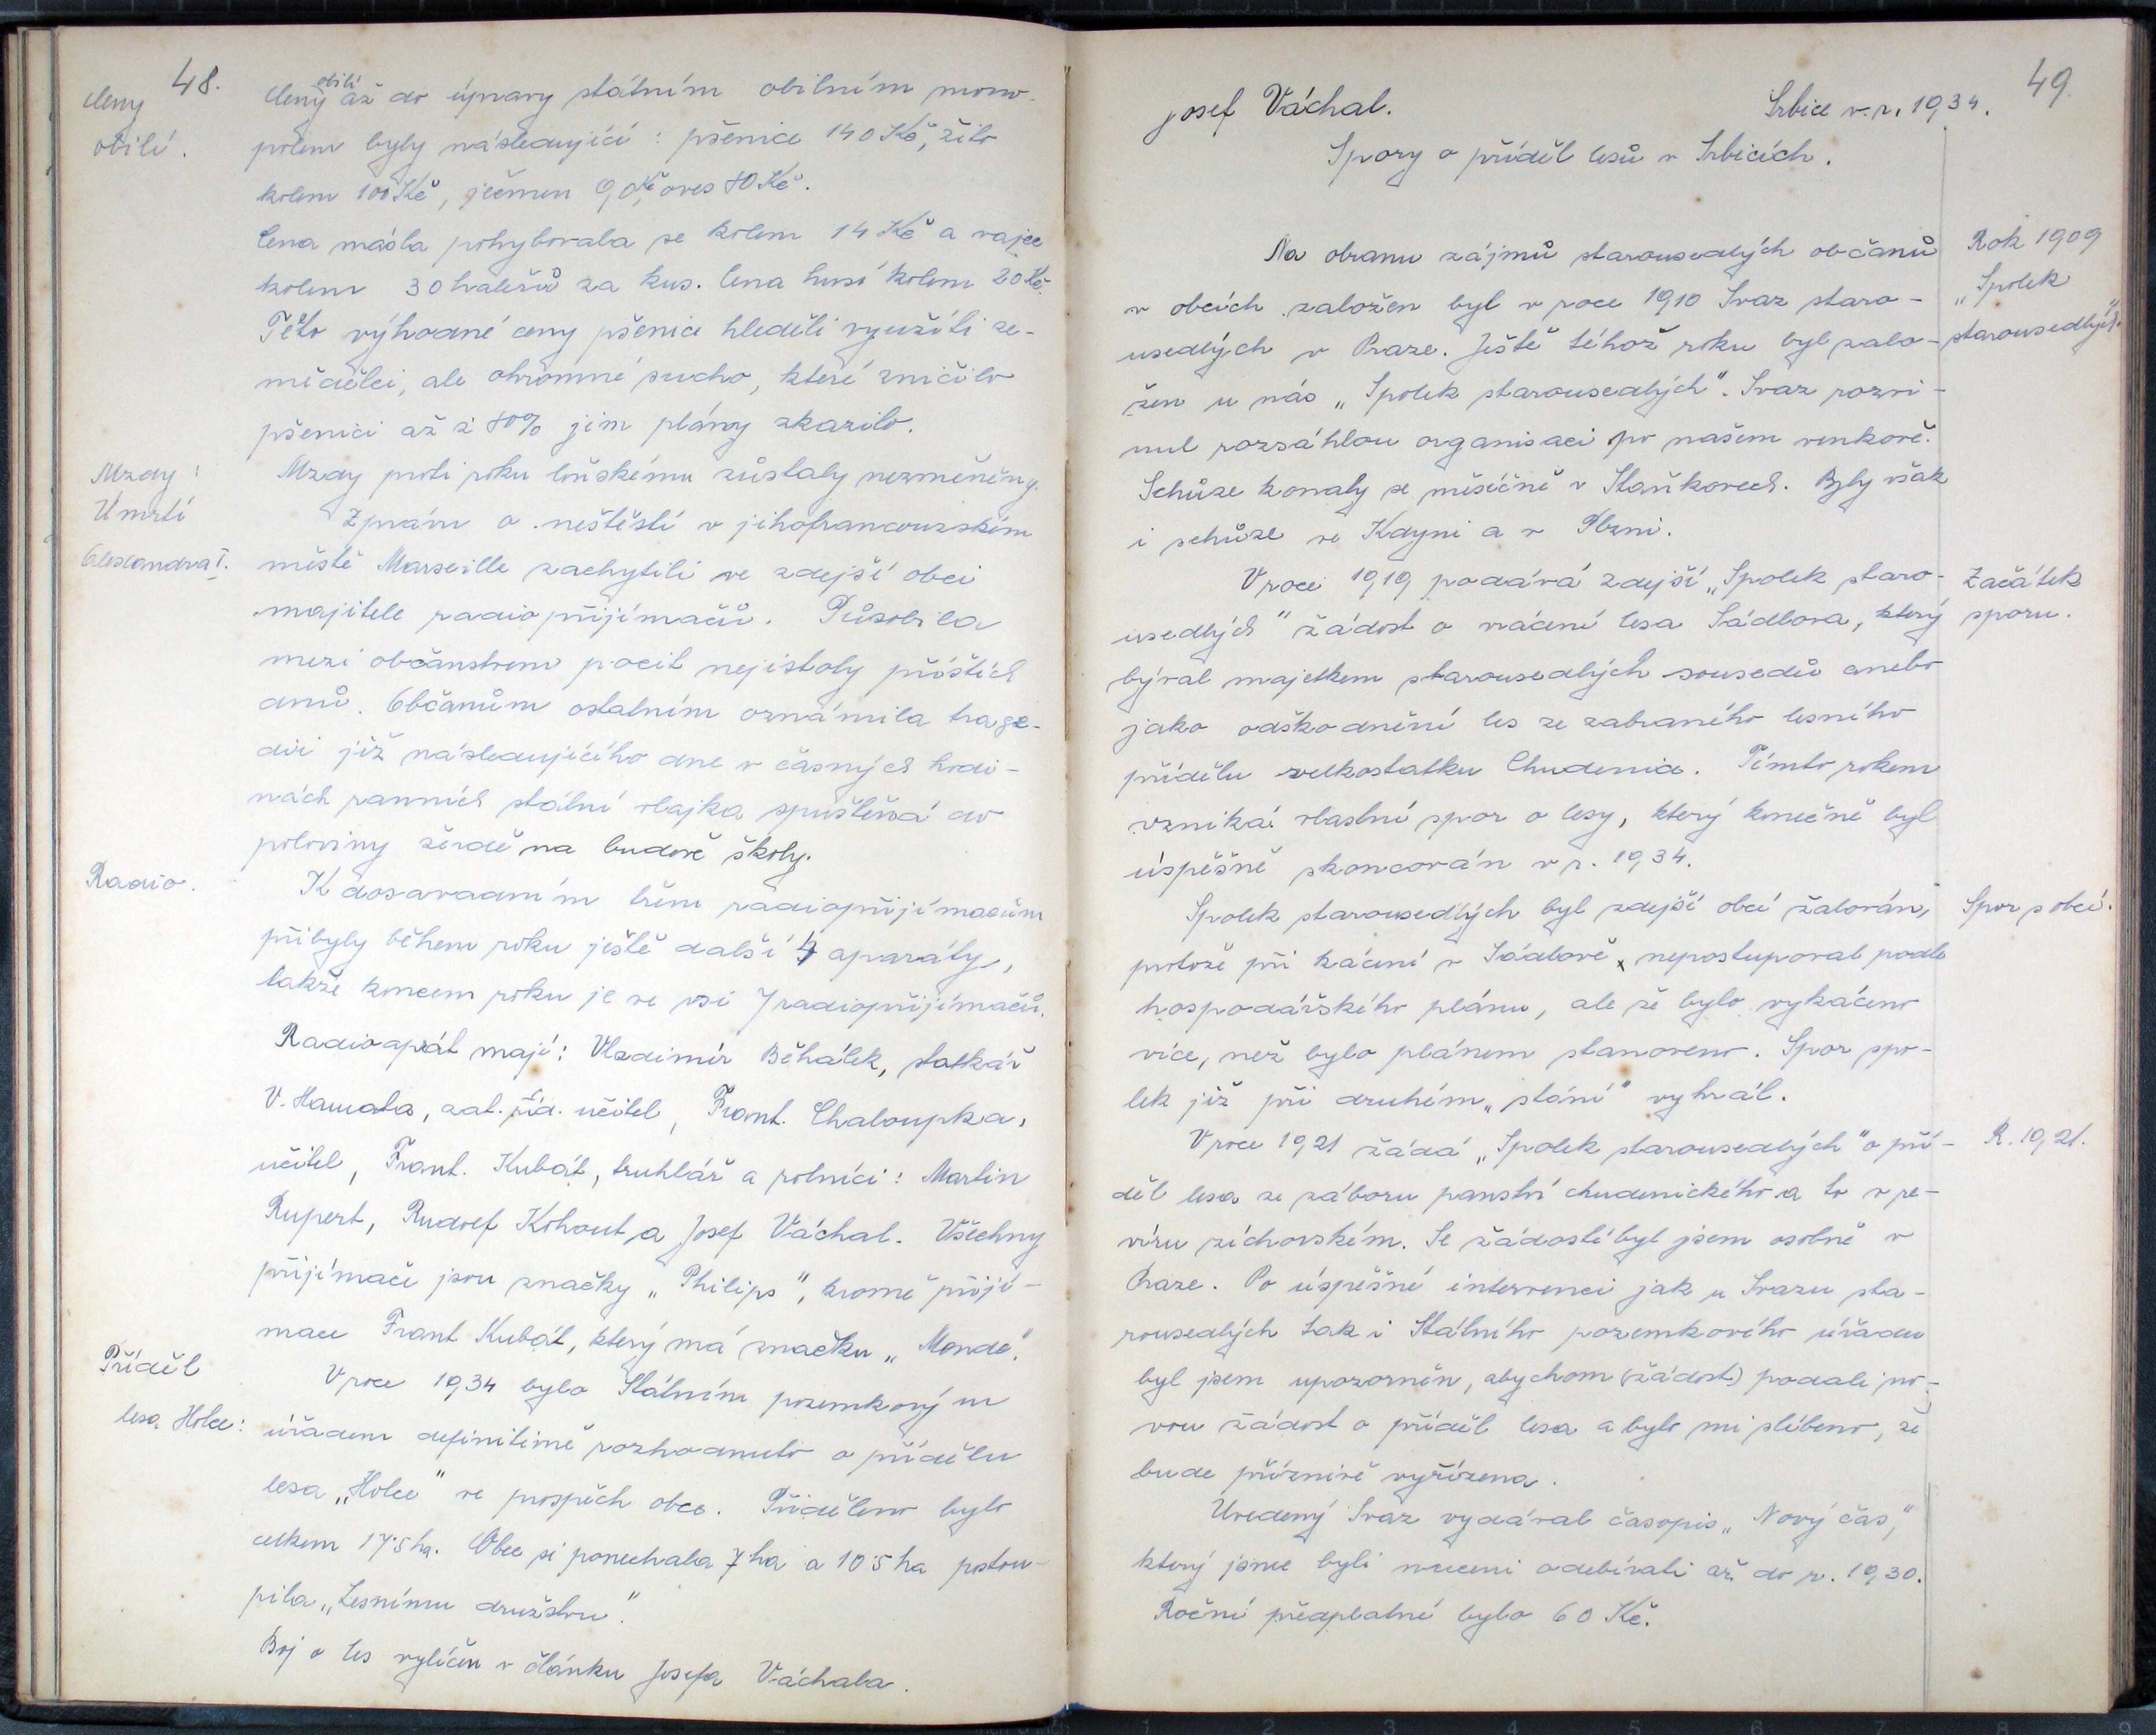 48.
Ceny
obilí.
Ceny obilí až do úpravy státním obilním mono-
polem byly následující: pšenice 140 Kč, žito
kolem 100 Kč, ječmen 90 Kč, oves 80 Kč.
Cena másla pohybovala se kolem 14 Kč a vajec
kolem 30 haléřů za kus. Cena husí kolem 20 Kč.
Této výhodné ceny pšenice hleděli využíti ze-
mědělci, ale ohromné sucho, které zničilo
pšenici až z 80% jim plány zkazilo.
Mzdy:
Mzdy proti roku loňskému zůstaly nezměněny.
Úmrtí
Alexandra I.
Zprávu o neštěstí v jihofrancouzském
městě Marseille zachytili ve zdejší obci
majitele radiopřijímačů. Působila
mezi občanstvem pocit nejistoty příštích
dnů. Občanům ostatním oznámila trage-
dii již následujícího dne v časných hodi-
nách ranních státní vlajka spuštěná do
poloviny žerdě na budově školy.
Radio.
K dosavadním třem radiopřijímačům
přibyly během roku ještě další 4 aparáty,
takže koncem roku je ve vsi 7 radiopřijímačů.
Radioaprát mají: Vladimír Běhálek, statkář
V. Hamata, zat. říd. učitel, Frant. Chaloupka,
učitel, Frant. Kubát, truhlář a rolníci: Martin
Rupert, Rudolf Kohout a Josef Váchal. Všechny
přijímače jsou značky „Philips", kromě přijí-
mace Frant Kubát, který má značku „Monde".
Příděl
lesa Holce:
V roce 1934 bylo Státním pozemkovým
úřadem definitivně rozhodnuto o přídělu
lesa „Holce" ve prospěch obce. Přiděleno bylo
celkem 17·5 ha. Obec si ponechala 7 ha a 10·5 ha postou-
pila „Lesnímu družstvu".
Boj o les vylíčen v článku Josefa Váchala.
49
Josef Váchal.
Srbice v. r. 1934.
Spory o příděl lesů v Srbicích.
Na obranu zájmů starousedlých občanů
v obcích založen byl v roce 1910 Svaz staro-
usedlých v Praze. Ještě téhož roku byl zalo-
žen u nás „Spolek starousedlých". Svaz rozvi-
nul rozsáhlou organisaci po našem venkově.
Schůze konaly se měsíčně v Staňkovech. Byly však
i schůze ve Kdyni a v Plzni.
Rok 1909
„Spolek
starousedlých".
V roce 1919 podává zdejší „Spolek staro-
usedlých" žádost o vrácení lesa Sádlova, který
býval majetkem starousedlých sousedů anebo
jako odškodnění les ze zabraného lesního
přídělu velkostatku Chudenice. Tímto rokem
vzniká vlastní spor o lesy, který konečně byl
úspěšně skoncován v r. 1934.
Začátek
sporu.
Spolek starousedlých byl zdejší obcí žalován,
protože při kácení v Sádlově nepostupoval podle
hospodářského plánu, ale že bylo vykáceno
více, než bylo plánem stanoveno. Spor spo-
lek již při druhém „stání" vyhrál.
Spor s obcí.
V roce 1921 žádá „Spolek starousedlých" o pří-
děl lesa ze záboru panství chudenického a to v re-
víru zíchovském. Se žádostí byl jsem osobně v
Praze. Po úspěšné intervenci jak u Svazu sta-
rousedlých tak i Státního pozemkového úřadu
byl jsem upozorněn, abychom (žádost) podali no-
vou žádost o příděl lesa a bylo mi slíbeno, že
bude příznivě vyřízena.
R. 1921.
Uvedený Svaz vydával časopis „Nový čas,"
který jsme byli nuceni odebírati až do r. 1930.
Roční předplatné bylo 60 Kč.